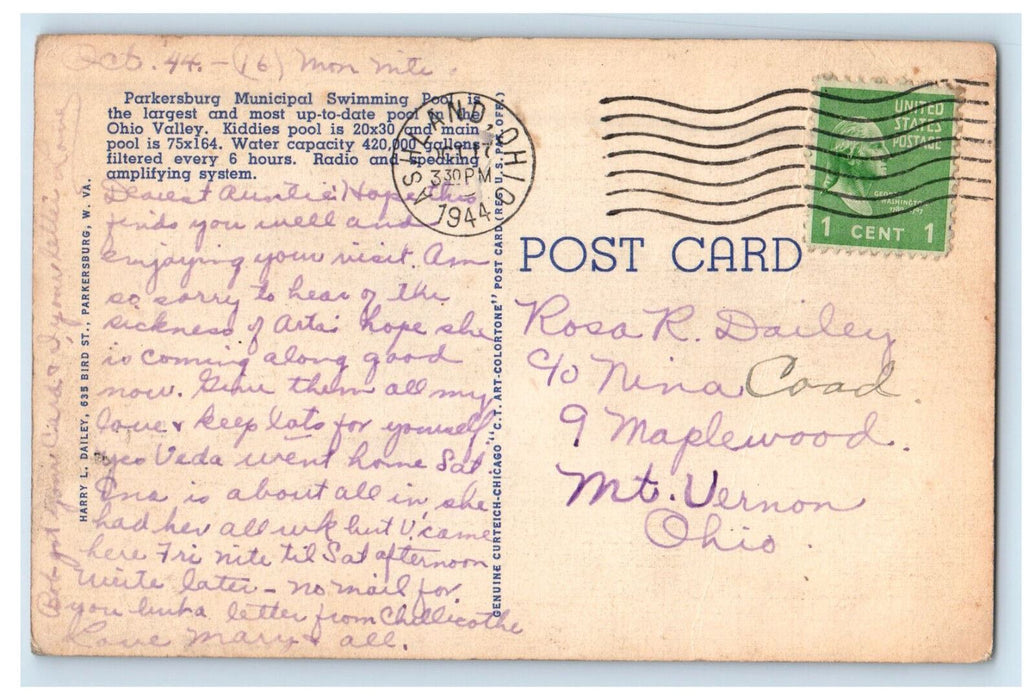 Oct. 44. - (16) Mon nite.
Parkersburg Municipal Swimming Pool is
the largest and most up-to-date pool in the
Ohio Valley. Kiddies pool is 20x30 and main
pool is 75x164. Water capacity 420,000 gallons
filtered every 6 hours. Radio and speaking
amplifying system.
Dearest Auntie: Hope this
finds you well and
enjoying your visit. Am
so sorry to hear of the
sickness of Arta. hope she
is coming along good
now. Give them all my
love & keep lots for yourself
yes Veda went home Sat.
Ona is about all in, she
had her all wk but V. came
here Fri nite til Sat afternoon
Write later - no mail for
you but a letter from Chillicothe
Love Mary & all.
Bob got your card & your letter
HARRY L. DAILEY, 635 BIRD ST., PARKERSBURG, W. VA.
GENUINE CURTEICH-CHICAGO "C.T. ART-COLORTONE" POST CARD (REG. U.S. PAT. OFF.)
ASHLAND, OHIO
OCT 17
3 30 PM
1944
UNITED
STATES
POSTAGE
GEORGE
WASHINGTON
1789-1797
1 CENT 1
POST CARD
Rosa R. Dailey
c/o Nina Coad.
9 Maplewood.
Mt. Vernon
Ohio.